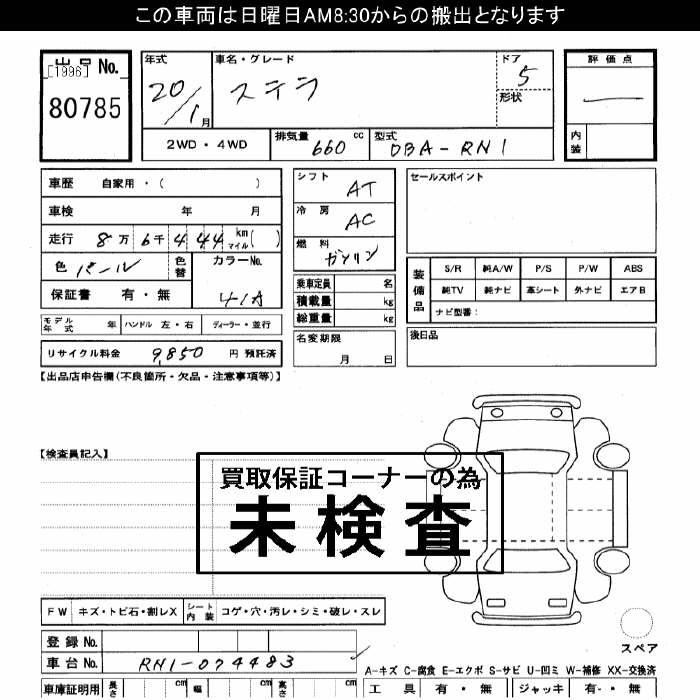 この車両は日曜日AM8:30からの搬出となります
出品 No.
[1996]
80785
年式 車名・グレード ドア
20/1月 ステラ 5
形状
評価点
内装
2WD・4WD 排気量 660 cc 型式 DBA-RN1
車歴 自家用・( )
車検 年 月
走行 8万 6千 4 44 km マイル ( )
色 パール 色替 カラーNo.
保証書 有・無 41A
モデル年式 年 ハンドル 左・右 ディーラー・並行
リサイクル料金 9,850 円 預託済
シフト AT
冷房 AC
燃料 ガソリン
乗車定員 名
積載量 kg
総重量 kg
名変期限
月 日
セールスポイント
装備品
S/R 純A/W P/S P/W ABS
純TV 純ナビ 革シート 外ナビ エアB
ナビ型番:
後日品
【出品店申告欄(不良箇所・欠品・注意事項等)】
【検査員記入】
買取保証コーナーの為
未検査
FW キズ・トビ石・割レX シート内装 コゲ・穴・汚レ・シミ・破レ・スレ
登録No.
車台No. RN1-074483
スペア
A-キズ C-腐食 E-エクボ S-サビ U-凹ミ W-補修 XX-交換済
車庫証明用 長さ cm 幅 cm 高さ cm
工具 有・無 ジャッキ 有・無